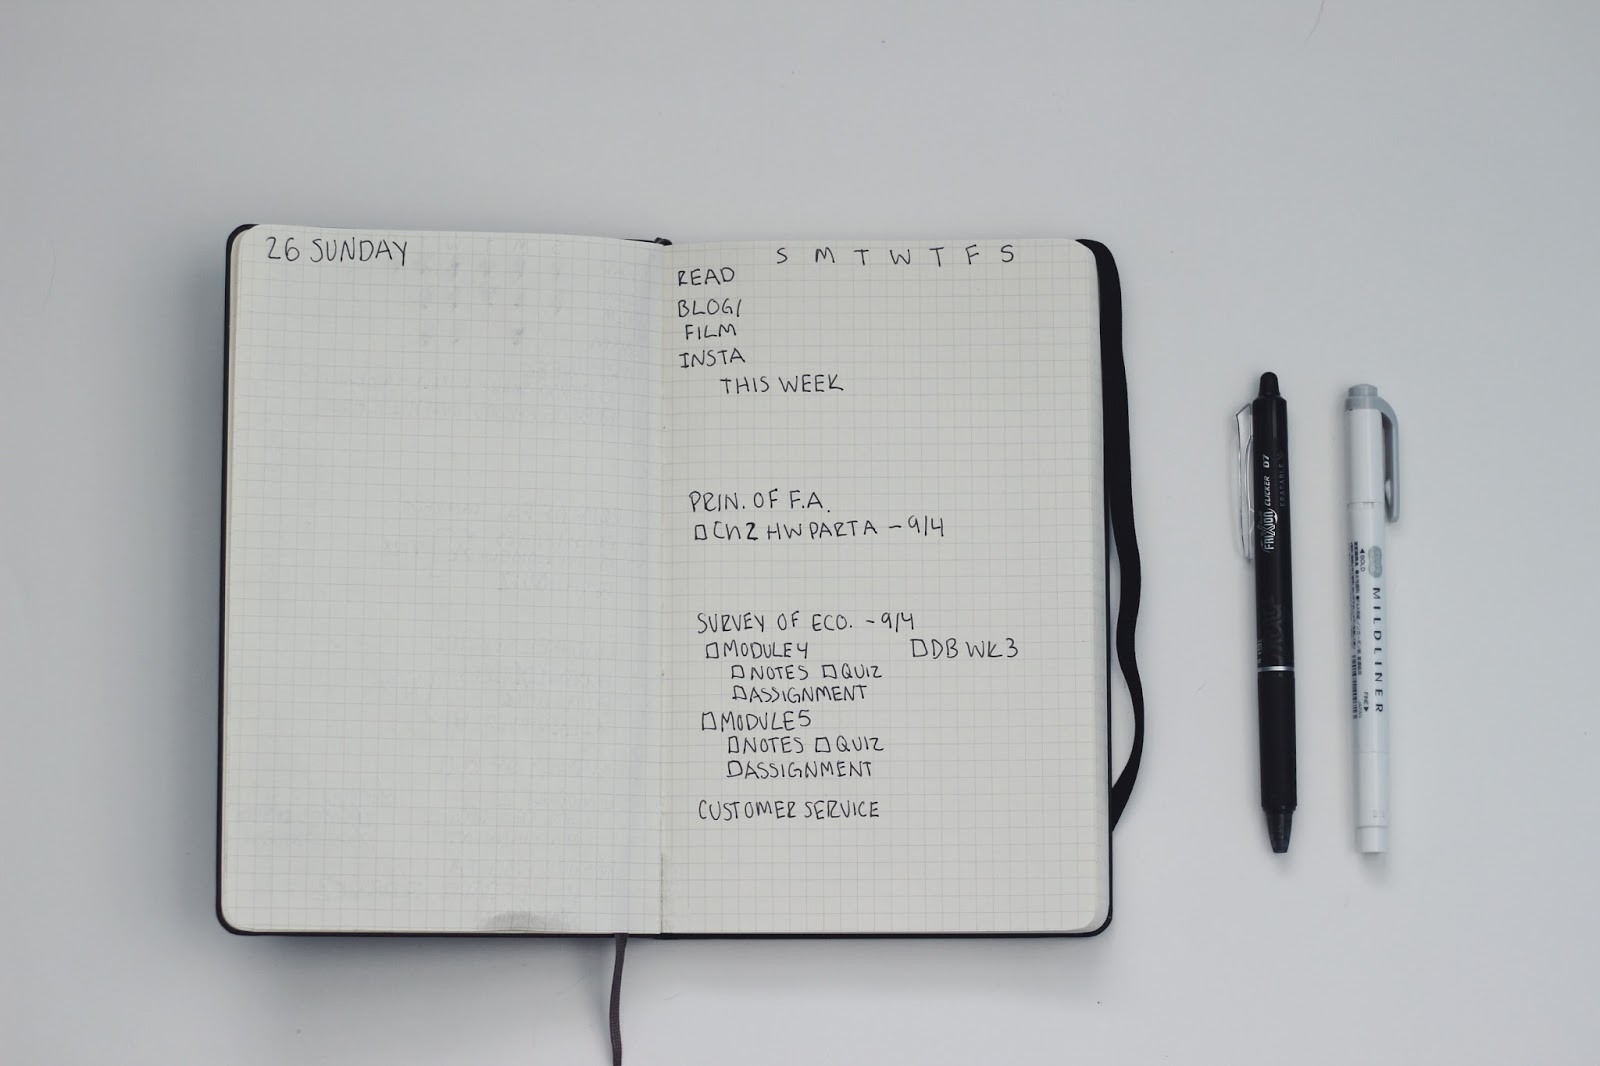 26 SUNDAY
S M T W T F S
READ
BLOG/
FILM
INSTA
THIS WEEK
PRIN. OF F.A.
Ch 2 HW PART A - 9/4
SURVEY OF ECO. - 9/4
MODULE 4 DB WK 3
NOTES QUIZ
ASSIGNMENT
MODULE 5
NOTES QUIZ
ASSIGNMENT
CUSTOMER SERVICE
FRIXION CLICKER 07
ERASABLE
MILDLINER
BOLD
FINE